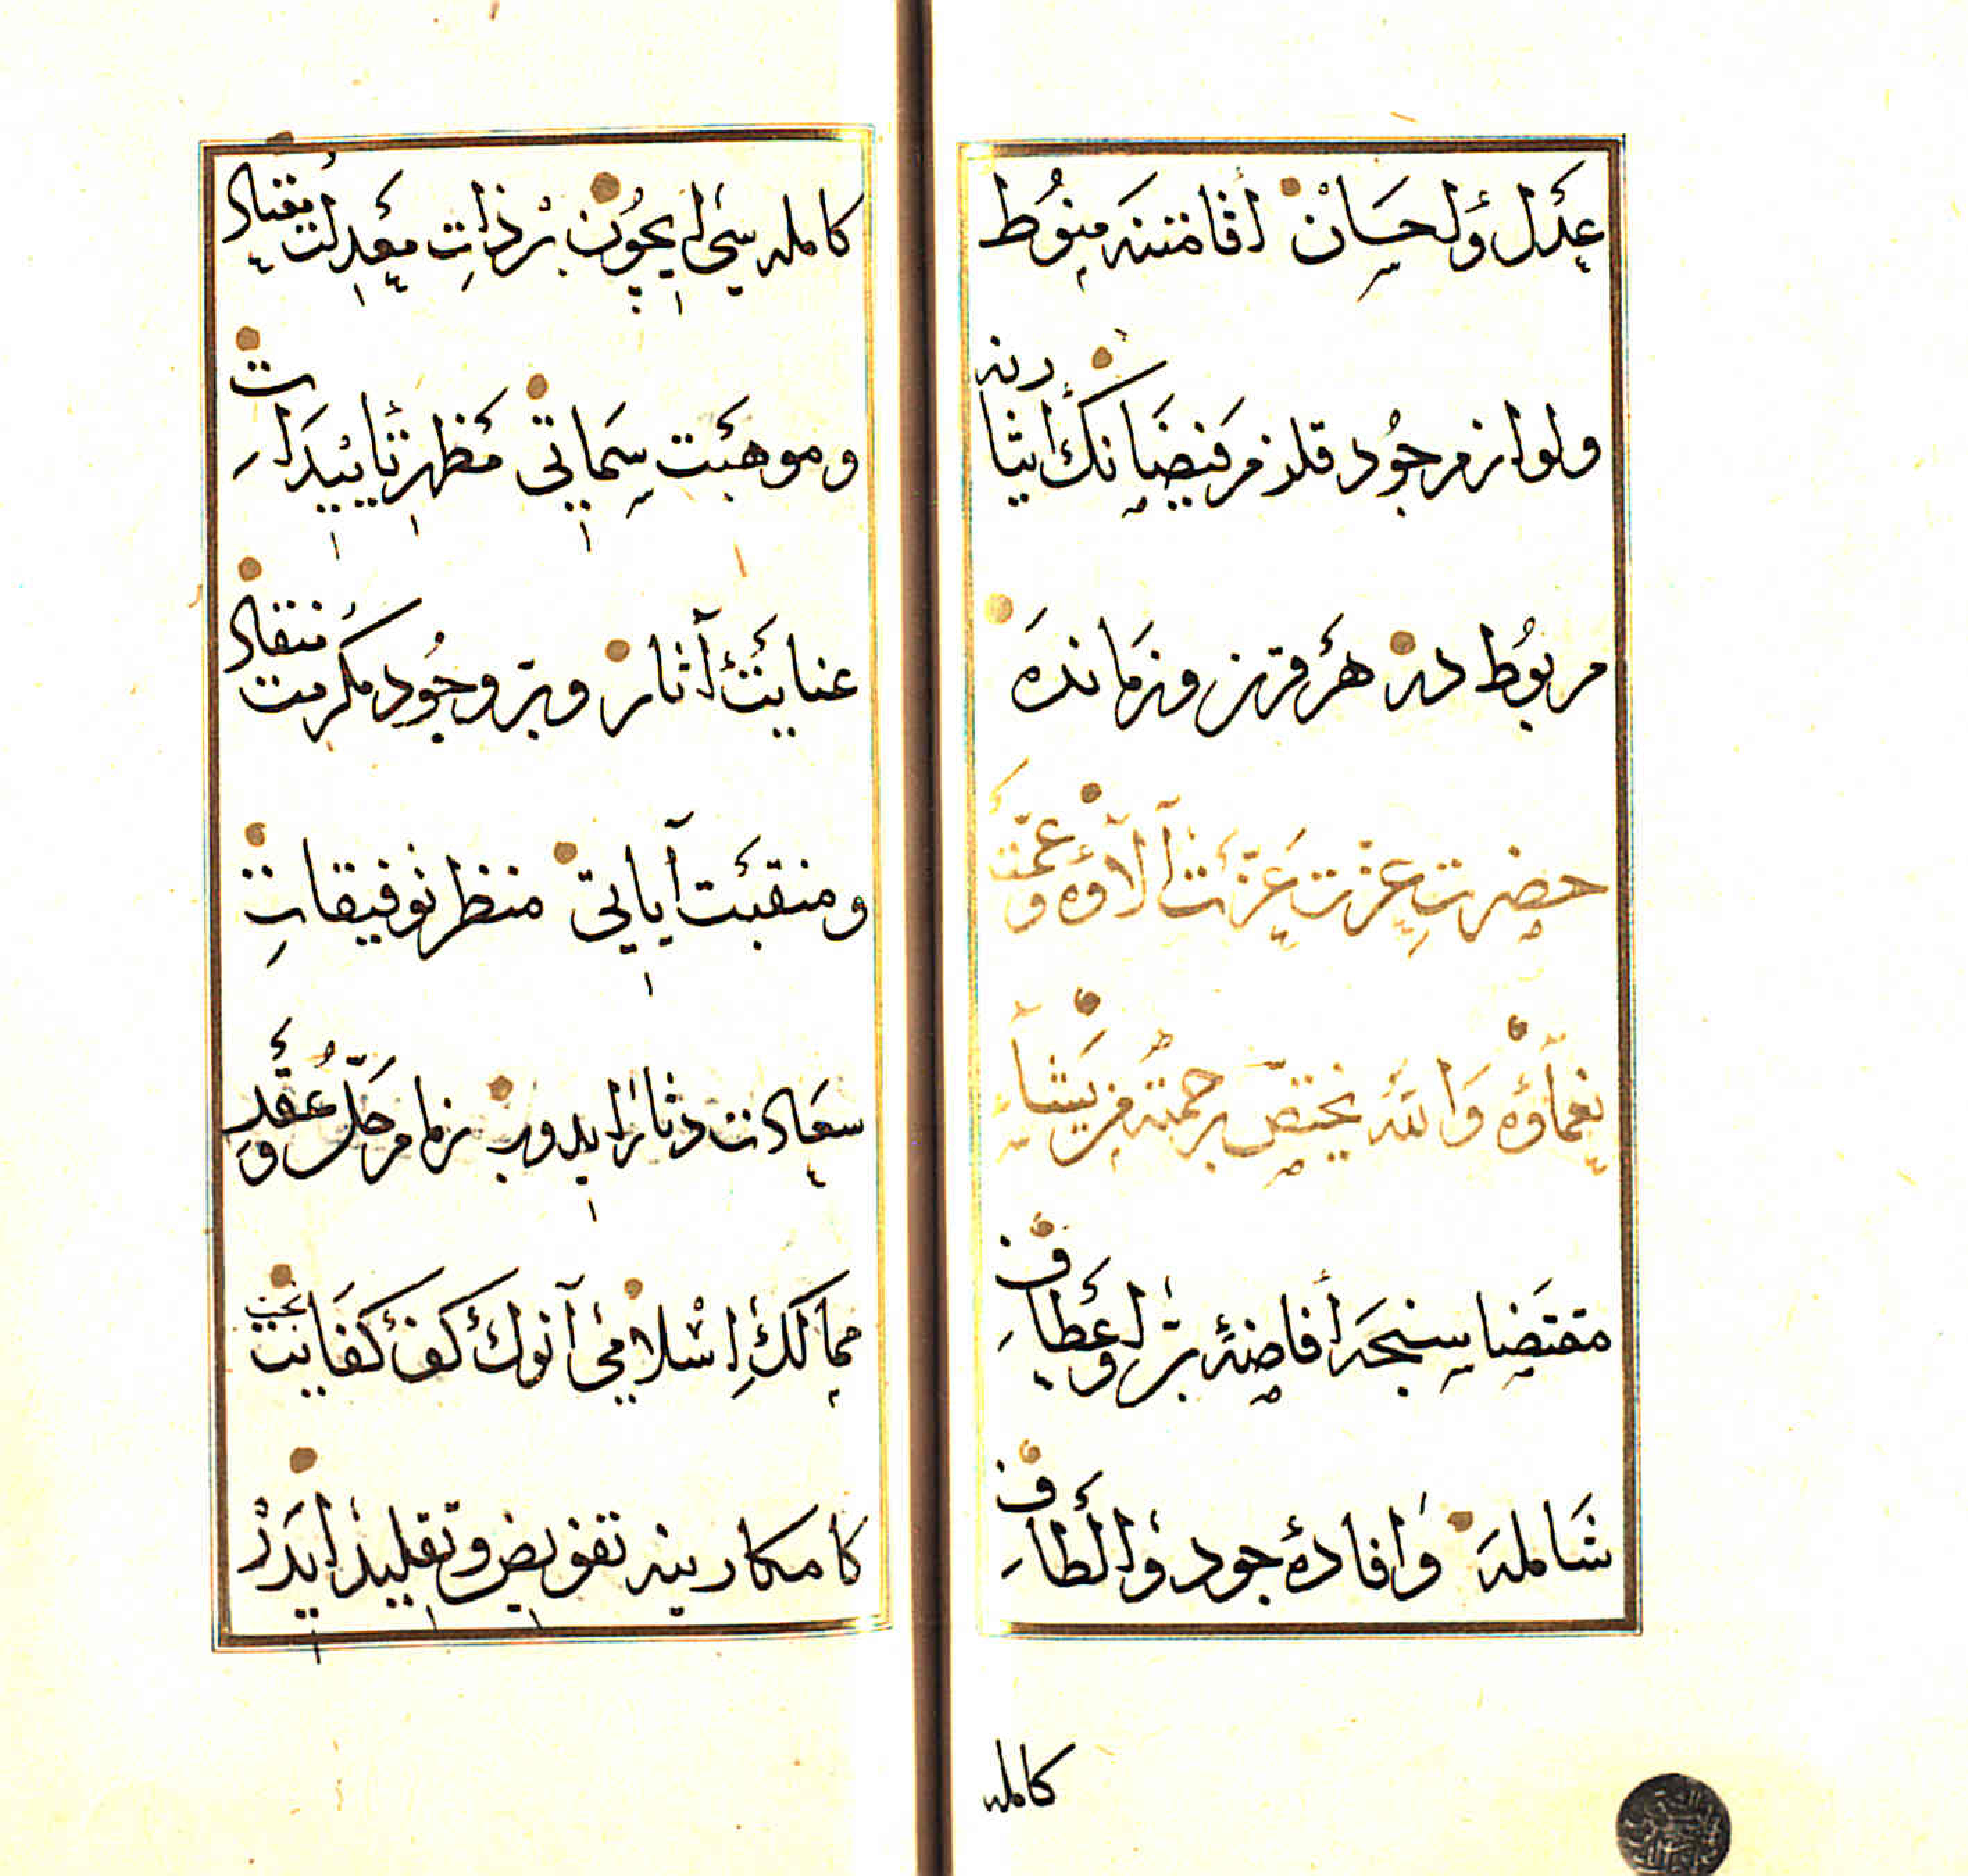 عدل و احسان اقامتنه منوط
ولوازم جود قلزم فيضانك ايثارينه
مربوط در هر قرن وزمانده
حضرت عزت عزت آلاؤه وعمت
نعماؤه والله يختص برحمته من يشآء
مقتضاسنجه افاضهٔ بر واعطاف
شامله وافادهٔ جود والطاف
كامله
كامله سى ايچون بر ذات معدلت نقيات
وموهبت سماتى مظهر تأييدات
عنايت آثار و بر وجود مكرمت منقاد
ومنقبت آياتى منظر توفيقات
سعادت دثار ايدوب زمام حل وعقد
ممالك اسلاميئى آنوك كف كفايت
كامكارينه تفويض وتقليد ايدر